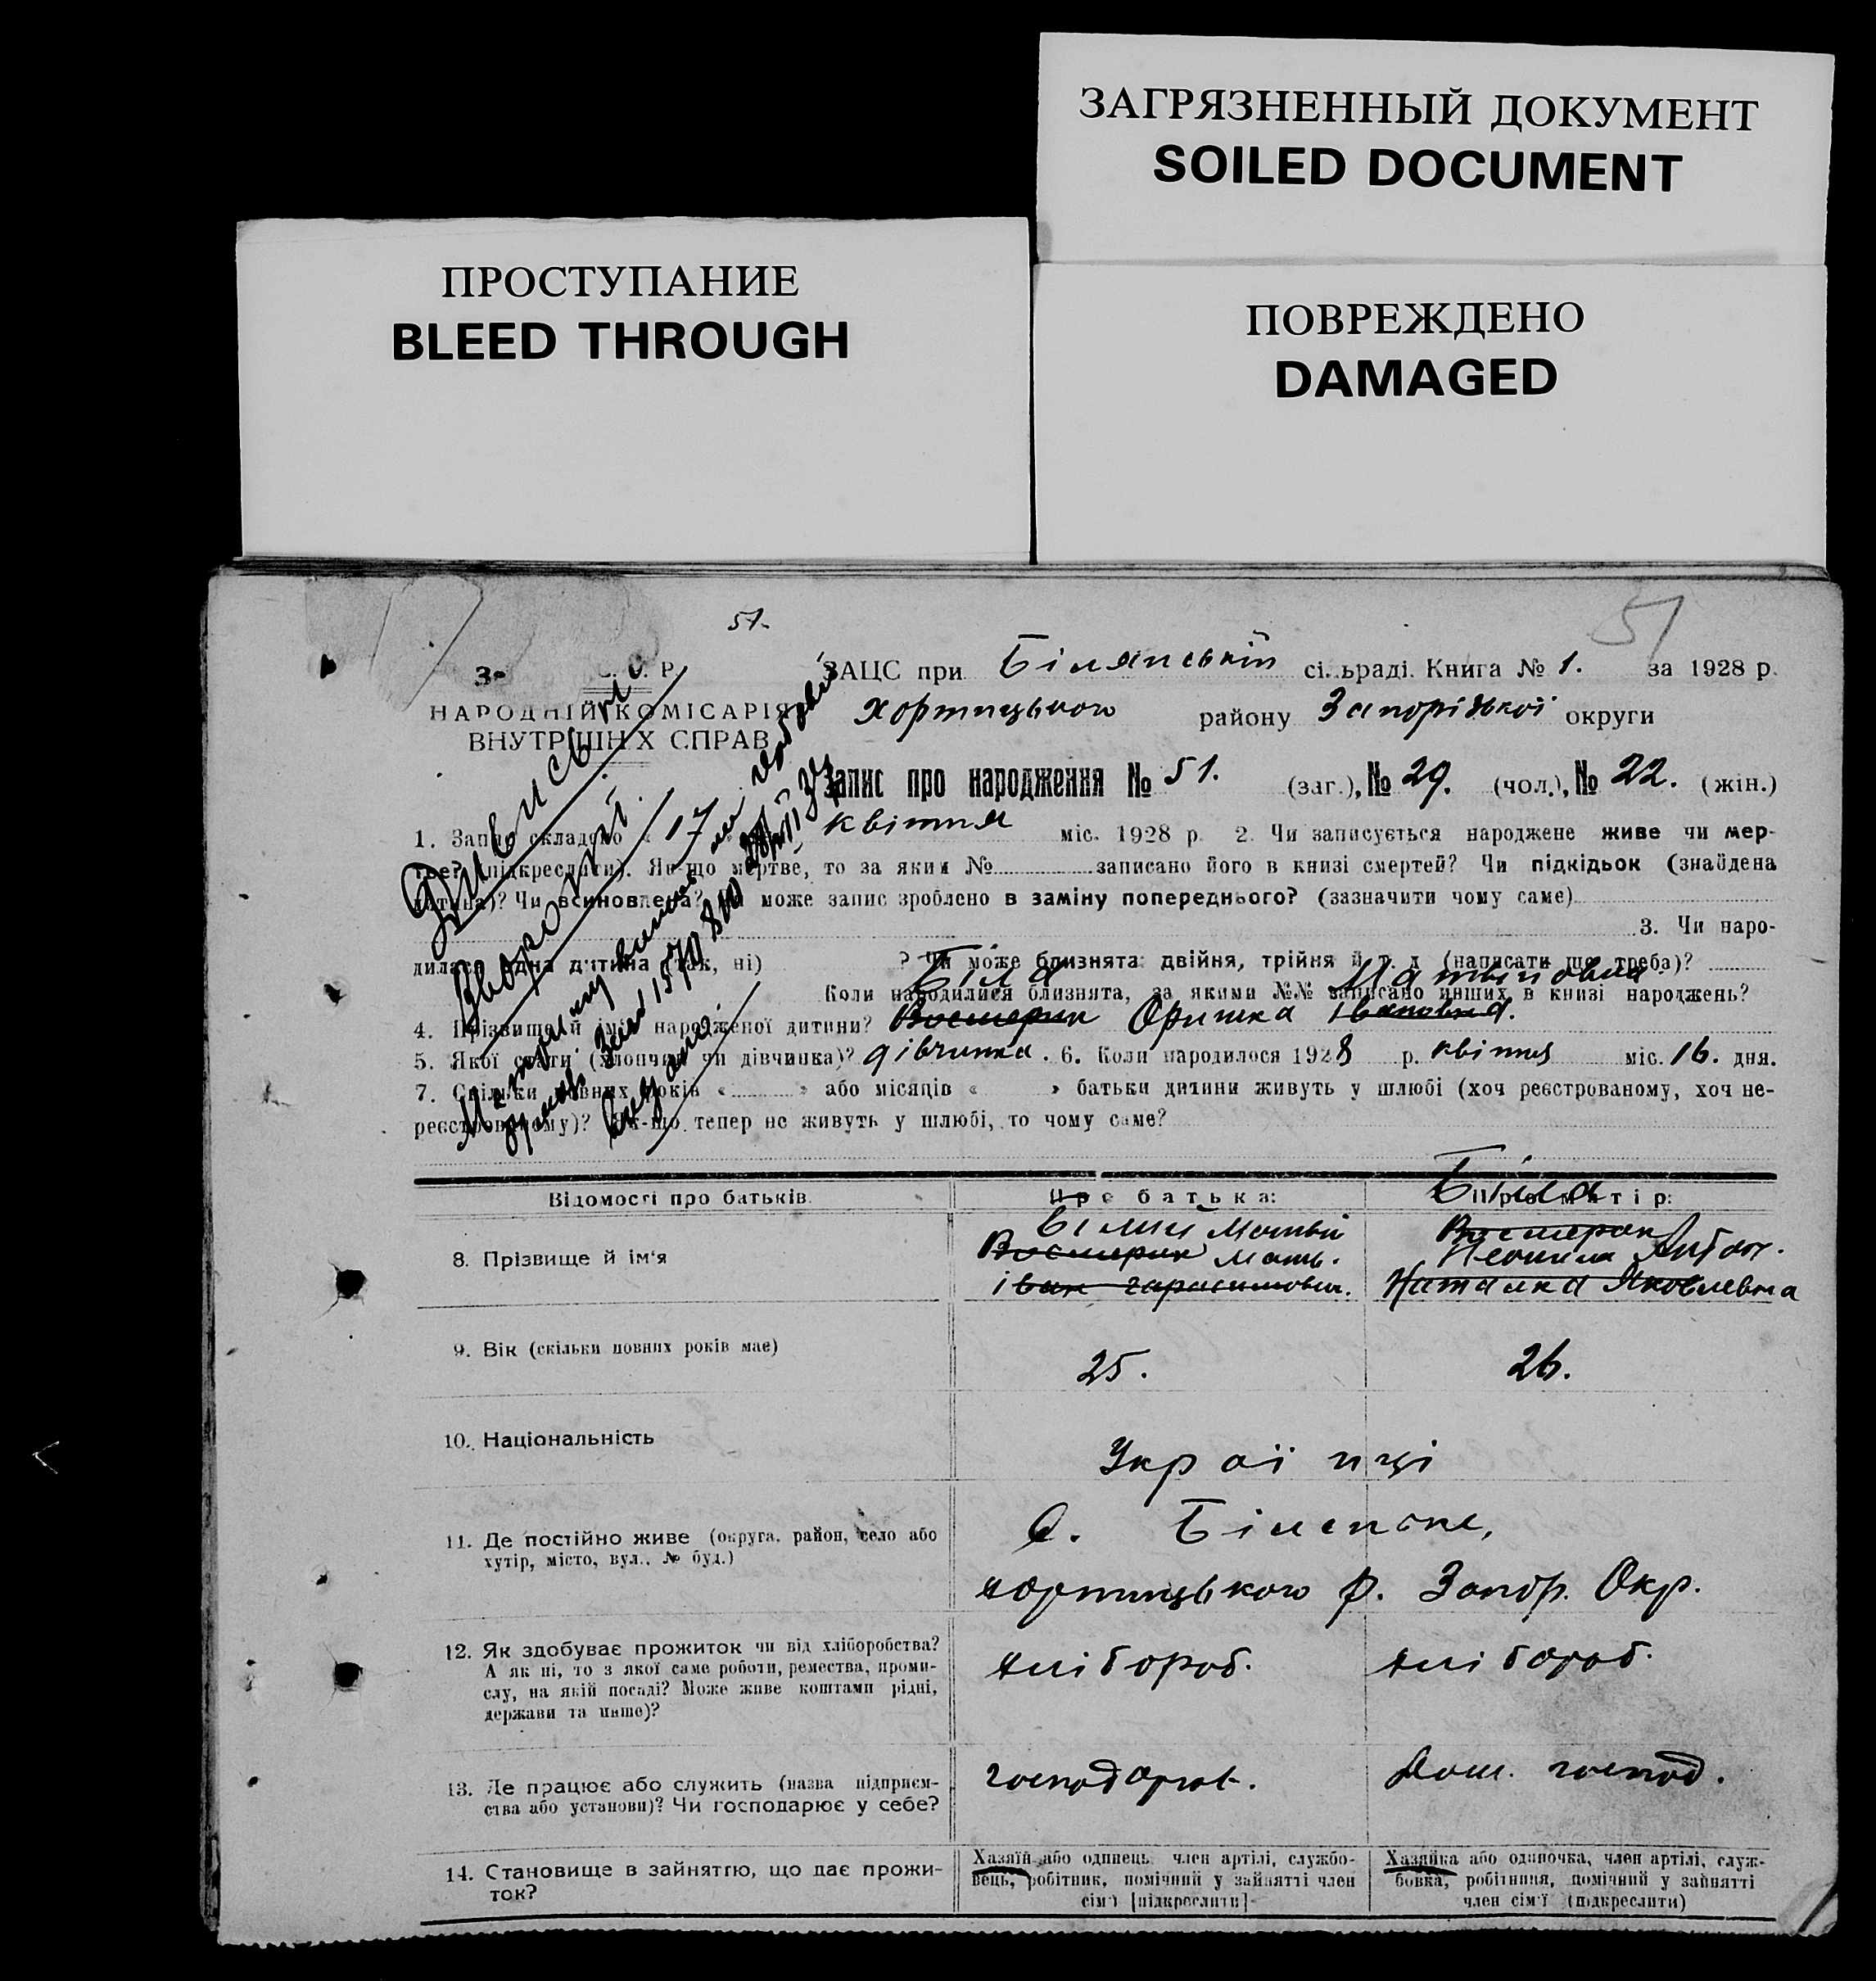 ЗАГРЯЗНЕННЫЙ ДОКУМЕНТ
SOILED DOCUMENT
ПРОСТУПАНИЕ
BLEED THROUGH
ПОВРЕЖДЕНО
DAMAGED
51.
51
ЗАЦС при Білянській сільраді. Книга № 1. за 1928 р.
НАРОДНІЙ КОМІСАРІЯ
ВНУТРІШН Х СПРАВ
Хортицького району Запорізької округи
Запис про народження № 51. (заг.), № 29. (чол.), № 22. (жін.)
1. Запис складено « 17 квітня міс. 1928 р. 2. Чи записується народжене живе чи мер-
тве? (підкреслити). Як-що мертве, то за яким № записано його в книзі смертей? Чи підкідьок (знайдена
дитина)? Чи всиновлена? може запис зроблено в заміну попереднього? (зазначити чому саме)
3. Чи наро-
дилась одна дитина (так, ні) ? Чи може близнята: двійня, трійня й т. д (написати що треба)?
Біла Матвіїовна
Коли народилися близнята, за якими №№ записано инших в книзі народжень?
4. Прізвище й ім'я народженої дитини? Восмерик Оришка Івановна.
5. Якої стати (хлопчик чи дівчинка)? дівчинка. 6. Коли народилося 1928 р. квітня міс. 16. дня.
7. Скільки повних років « » або місяців « » батьки дитини живуть у шлюбі (хоч реєстрованому, хоч не-
реєстрованому)? Як-що тепер не живуть у шлюбі, то чому саме?
Біла
Відомості про батьків. Про батька: Про матір:
8. Прізвище й ім'я
Білий Матвій
Восмерик
Іван Гарасимович.
Восмерик
Наталка Яковлевна
9. Вік (скільки повних років має) 25. 26.
10. Національність Українці
11. Де постійно живе (округа, район, село або
хутір, місто, вул., № буд.)
С. Біленьке,
Хортицького р. Запор. Окр.
12. Як здобуває прожиток чи від хліборобства?
А як ні, то з якої саме роботи, ремества, проми-
слу, на якій посаді? Може живе коштами рідні,
держави та инше)?
хлібороб. хлібороб.
13. Де працює або служить (назва підприєм-
ства або установи)? Чи господарює у себе?
господарює. Дом. господ.
14. Становище в зайняттю, що дає прожи-
ток?
Хазяїн або одинець, член артілі, службо-
вець, робітник, помічний у зайнятті член
сім'ї [підкреслити]
Хазяйка або одиночка, член артілі, служ-
бовка, робітниця, помічний у зайнятті
член сім'ї (підкреслити)